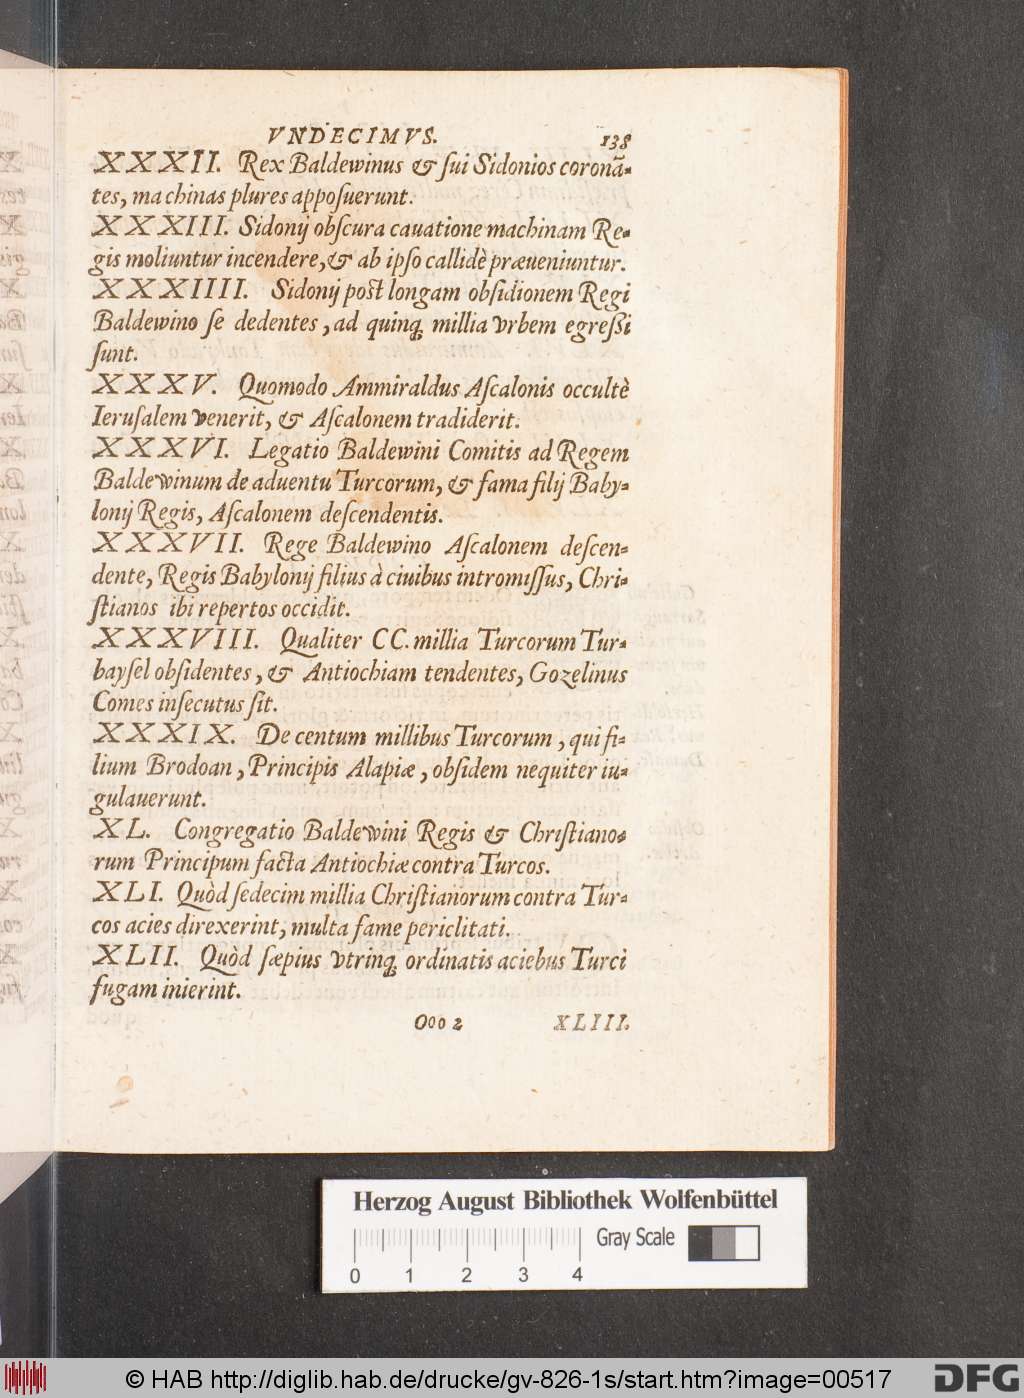 VNDECIMVS. 138
XXXII. Rex Baldewinus & ſui Sidonios coronã-
tes, machinas plures appoſuerunt.
XXXIII. Sidonij obſcura cauatione machinam Re-
gis moliuntur incendere, & ab ipſo callidè præueniuntur.
XXXIIII. Sidonij post longam obſidionem Regi
Baldewino ſe dedentes, ad quinq; millia vrbem egreßi
ſunt.
XXXV. Quomodo Ammiraldus Aſcalonis occultè
Ieruſalem venerit, & Aſcalonem tradiderit.
XXXVI. Legatio Baldewini Comitis ad Regem
Baldewinum de aduentu Turcorum, & fama filij Baby-
lonij Regis, Aſcalonem deſcendentis.
XXXVII. Rege Baldewino Aſcalonem deſcen-
dente, Regis Babylonij filius à ciuibus intromiſſus, Chri-
ſtianos ibi repertos occidit.
XXXVIII. Qualiter CC. millia Turcorum Tur-
bayſel obſidentes, & Antiochiam tendentes, Gozelinus
Comes inſecutus ſit.
XXXIX. De centum millibus Turcorum, qui fi-
lium Brodoan, Principis Alapiæ, obſidem nequiter iu-
gulauerunt.
XL. Congregatio Baldewini Regis & Chriſtiano-
rum Principum facta Antiochiæ contra Turcos.
XLI. Quòd ſedecim millia Chriſtianorum contra Tur-
cos acies direxerint, multa fame periclitati.
XLII. Quòd ſæpius vtrinq; ordinatis aciebus Turci
fugam inierint.
Ooo 2 XLIII.
Herzog August Bibliothek Wolfenbüttel
Gray Scale
0 1 2 3 4
© HAB http://diglib.hab.de/drucke/gv-826-1s/start.htm?image=00517
DFG